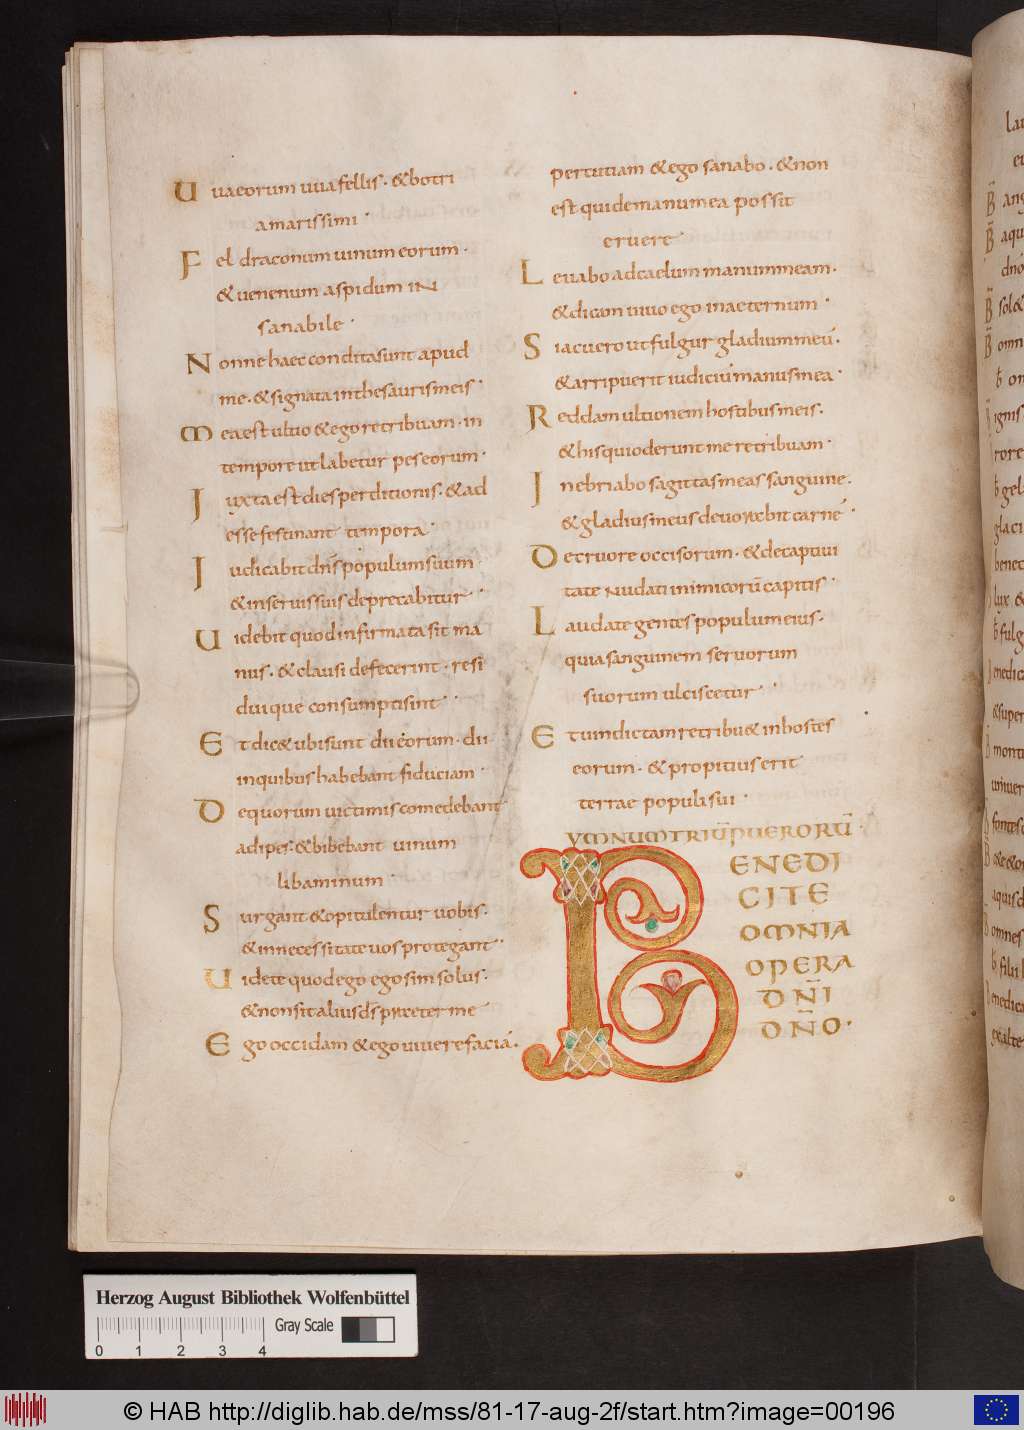 Uvaeorum uva fellis. & botri
amarissimi.
Fel draconum uinum eorum.
& uenenum aspidum IN
sanabile.
Nonne haec condita sunt apud
me. & signata in thesauris meis.
Mea est ultio & ego retribuam. in
tempore ut labetur pes eorum.
Juxta est dies perditionis. & ad
esse festinant tempora.
Judicabit dn̄s populum suum
& in seruis suis deprecabitur.
Uidebit quod infirmata sit ma
nus. & clausi defecerint. resi
dui que consumpti sint.
Et dic& ubi sunt dii eorum. dii
in quibus habebant fiduciam.
De quorum uictimis comedebant
adipes. & bibebant uinum
libaminum.
Surgant & opitulentur uobis.
& in necessitate uos protegant.
Uidete quod ego ego sim solus.
& non sit alius d̄s praeter me
Ego occidam & ego uiuere faciā.
percutiam & ego sanabo. & non
est qui de manu mea possit
eruere.
Leuabo ad caelum manum meam.
& dicam uiuo ego in aeternum.
Si acuero ut fulgur gladium meū.
& arripuerit iudiciū manus mea.
Reddam ultionem hostibus meis.
& his qui oderunt me retribuam.
Jnebriabo sagittas meas sanguine.
& gladius meus deuorabit carnē.
De cruore occisorum. & de captiui
tate nudati inimicorū capitis.
Laudate gentes populum eius.
quia sanguinem seruorum
suorum ulciscetur.
Et uindictam retribu& in hostes
eorum. & propitius erit
terrae populi sui.
YMNUM TRIŪ PUERORŪ.
BENEDJ
CJTE
OMNIA
OPERA
DN̄I
DN̄O.
Herzog August Bibliothek Wolfenbüttel
Gray Scale
0 1 2 3 4
© HAB http://diglib.hab.de/mss/81-17-aug-2f/start.htm?image=00196